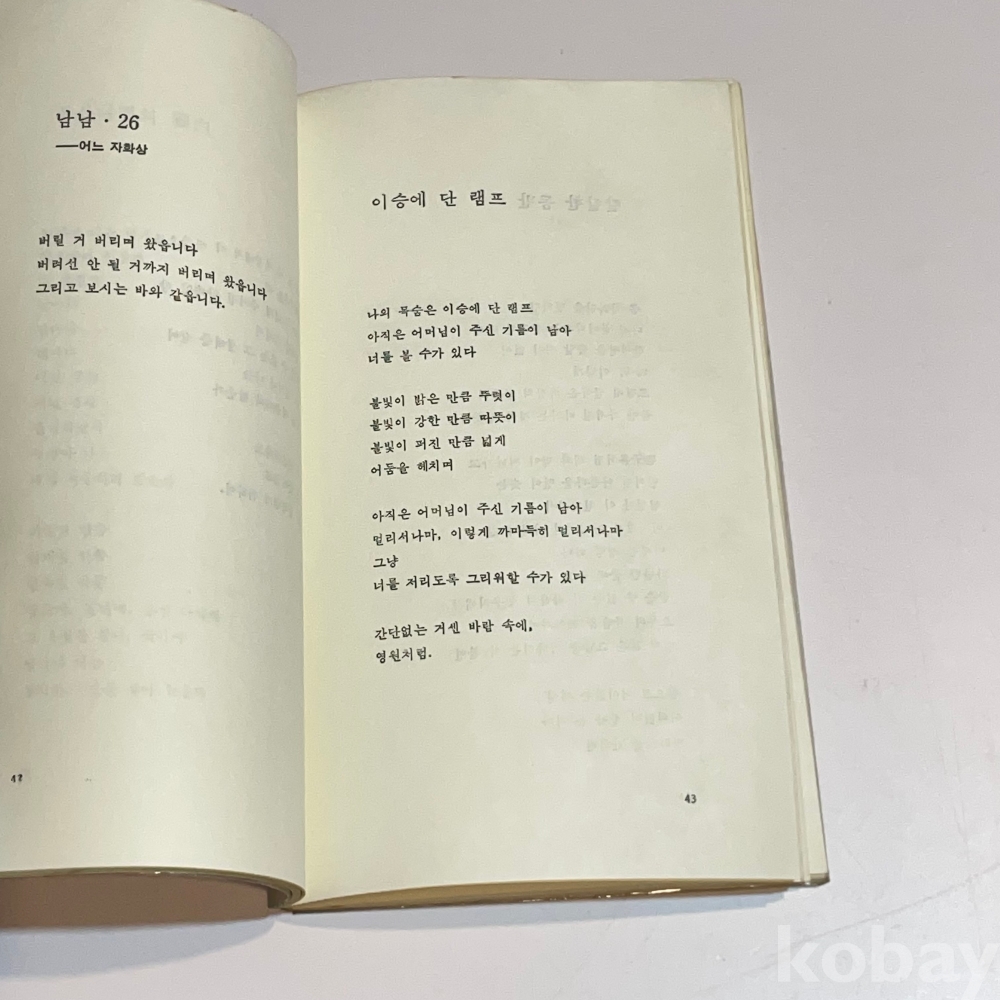 남남 · 26
──어느 자화상
버릴 거 버리며 왔읍니다
버려선 안 될 거까지 버리며 왔읍니다
그리고 보시는 바와 같읍니다.
42
이승에 단 램프
나의 목숨은 이승에 단 램프
아직은 어머님이 주신 기름이 남아
너를 볼 수가 있다
불빛이 밝은 만큼 뚜렷이
불빛이 강한 만큼 따뜻이
불빛이 퍼진 만큼 넓게
어둠을 헤치며
아직은 어머님이 주신 기름이 남아
멀리서나마, 이렇게 까마득히 멀리서나마
그냥
너를 저리도록 그리워할 수가 있다
간단없는 거센 바람 속에,
영원처럼.
43
kobay